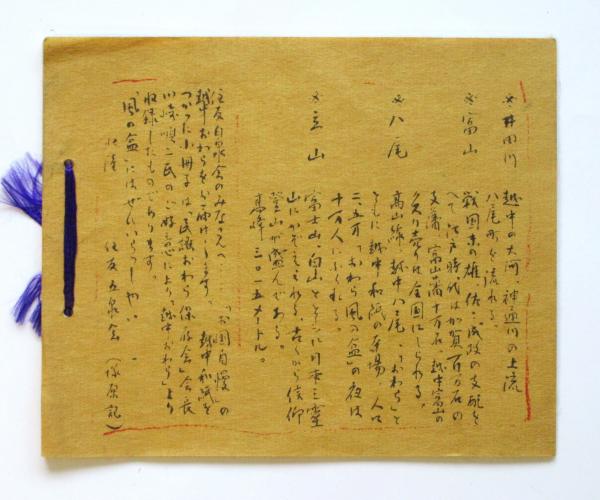 井田川 越中の大河、神通川の上流
八尾町を流れる。
富山 戦国末の雄佐々成政の支配を
へて江戸時代は加賀百万石の
支藩、富山藩十万石、越中富山の
売りは全国にしられる。
八尾 高山線、越中八尾、「おわら」と
ともに越中和紙の本場 人口
二、五万「おわら風の盆」の夜は
十万人にふくれる。
立山 富士山、白山とともに日本三霊
山にかぞえられる。古くから信仰
登山が盛んである。
高峰 三〇一五メートル。
住友白泉会のみなさんへ…… 「お国自慢」の
越中おわらをお届けします。 越中和紙を
つかった小冊子は、「民謡おわら保存会」会長
川崎順二氏のご好意により「越中おわら」より
収録したものであります
「風の盆」にはぜひいらっしゃい。
北陸 住友五泉会